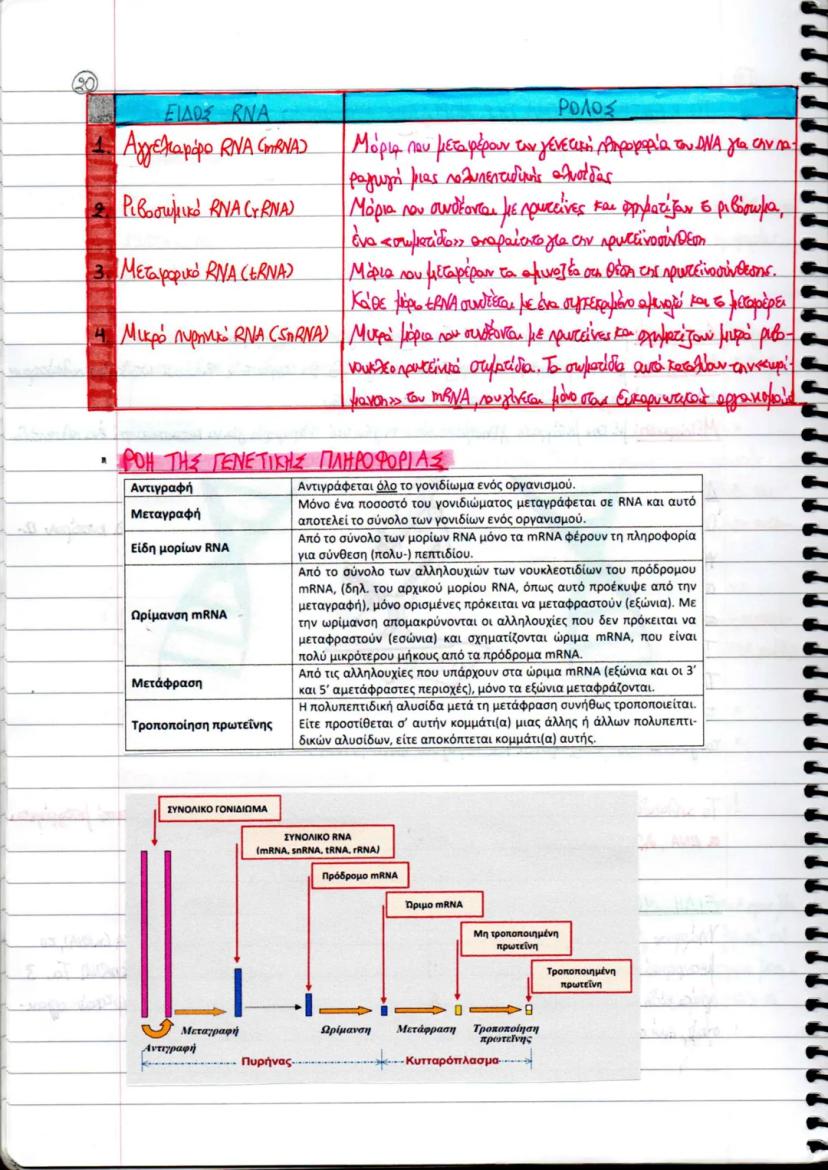 20
ΕΙΔΟΣ RNA ΡΟΛΟΣ
1. Αγγελιαφόρο RNA (mRNA) Μόρια που μεταφέρουν την γενετική πληροφορία του DNA για την πα-
ραγωγή μιας πολυπεπτιδικής αλυσίδας
2. Ριβοσωμικό RNA (rRNA) Μόρια που συνδέονται με πρωτεΐνες και σχηματίζουν το ριβόσωμα,
ένα «σωματίδιο» απαραίτητο για την πρωτεϊνοσύνθεση
3. Μεταφορικό RNA (tRNA) Μόρια που μεταφέρουν τα αμινοξέα στη θέση της πρωτεϊνοσύνθεσης.
Κάθε μόριο tRNA συνδέεται με ένα συγκεκριμένο αμινοξύ και το μεταφέρει
4. Μικρό πυρηνικό RNA (SnRNA) Μικρά μόρια που συνδέονται με πρωτεΐνες και σχηματίζουν μικρά ριβο-
νουκλεοπρωτεϊνικά σωματίδια. Τα σωματίδια αυτά καταλύουν την «ωρί-
μανση» του mRNA, που γίνεται μόνο στους ευκαρυωτικούς οργανισμούς
▪ ΡΟΗ ΤΗΣ ΓΕΝΕΤΙΚΗΣ ΠΛΗΡΟΦΟΡΙΑΣ
Αντιγραφή Αντιγράφεται όλο το γονιδίωμα ενός οργανισμού.
Μεταγραφή Μόνο ένα ποσοστό του γονιδιώματος μεταγράφεται σε RNA και αυτό
αποτελεί το σύνολο των γονιδίων ενός οργανισμού.
Είδη μορίων RNA Από το σύνολο των μορίων RNA μόνο τα mRNA φέρουν τη πληροφορία
για σύνθεση (πολυ-) πεπτιδίου.
Ωρίμανση mRNA Από το σύνολο των αλληλουχιών των νουκλεοτιδίων του πρόδρομου
mRNA, (δηλ. του αρχικού μορίου RNA, όπως αυτό προέκυψε από την
μεταγραφή), μόνο ορισμένες πρόκειται να μεταφραστούν (εξώνια). Με
την ωρίμανση απομακρύνονται οι αλληλουχίες που δεν πρόκειται να
μεταφραστούν (εσώνια) και σχηματίζονται ώριμα mRNA, που είναι
πολύ μικρότερου μήκους από τα πρόδρομα mRNA.
Μετάφραση Από τις αλληλουχίες που υπάρχουν στα ώριμα mRNA (εξώνια και οι 3’
και 5’ αμετάφραστες περιοχές), μόνο τα εξώνια μεταφράζονται.
Τροποποίηση πρωτεΐνης Η πολυπεπτιδική αλυσίδα μετά τη μετάφραση συνήθως τροποποιείται.
Είτε προστίθεται σ’ αυτήν κομμάτι(α) μιας άλλης ή άλλων πολυπεπτι-
δικών αλυσίδων, είτε αποκόπτεται κομμάτι(α) αυτής.
ΣΥΝΟΛΙΚΟ ΓΟΝΙΔΙΩΜΑ
ΣΥΝΟΛΙΚΟ RNA
(mRNA, snRNA, tRNA, rRNA)
Πρόδρομο mRNA
Ώριμο mRNA
Μη τροποποιημένη
πρωτεΐνη
Τροποποιημένη
πρωτεΐνη
Μεταγραφή Ωρίμανση Μετάφραση Τροποποίηση
πρωτεΐνης
Αντιγραφή
Πυρήνας Κυτταρόπλασμα